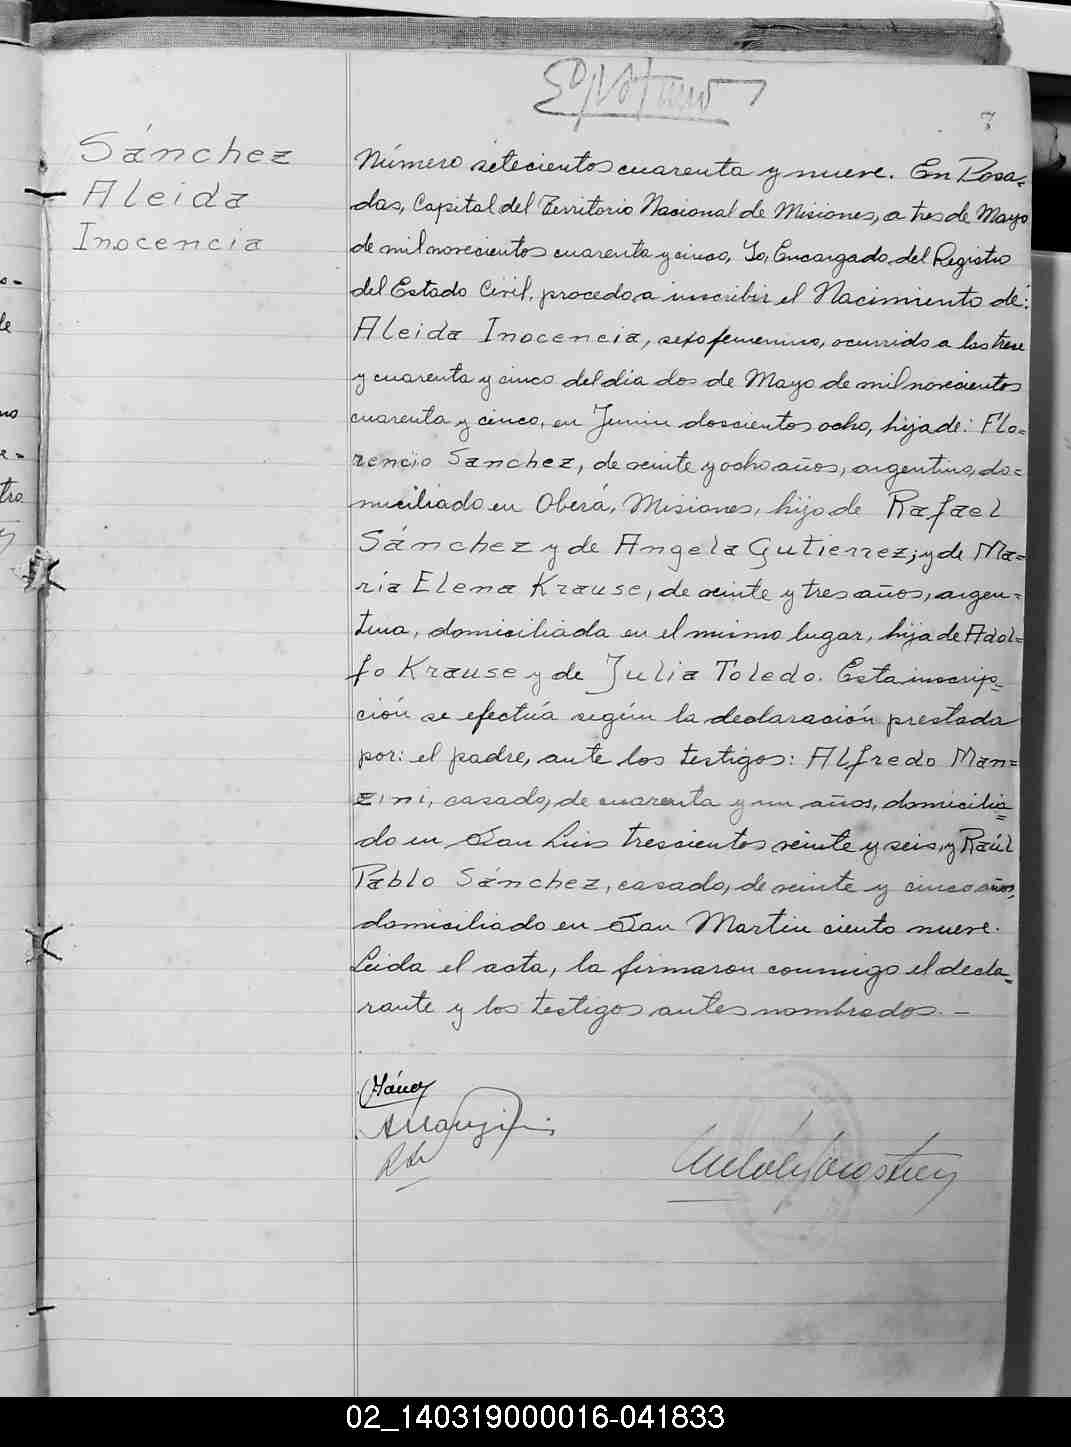 7
Sánchez
Aleida
Inocencia
Número setecientos cuarenta y nueve. En Posa=
das, Capital del Territorio Nacional de Misiones, a tres de Mayo
de mil novecientos cuarenta y cinco, Yo, Encargado del Registro
del Estado Civil, procedo a inscribir el Nacimiento de:
Aleida Inocencia, sexo femenino, ocurrido a las trece
y cuarenta y cinco del día dos de Mayo de mil novecientos
cuarenta y cinco, en Junin doscientos ocho, hija de: Flo=
rencio Sanchez, de veinte y ocho años, argentino, do=
miciliado en Oberá, Misiones, hijo de Rafael
Sánchez y de Angela Gutierrez; y de Ma=
ría Elena Krause, de veinte y tres años, argen=
tina, domiciliada en el mismo lugar, hija de Adol=
fo Krause y de Julia Toledo. Esta inscrip=
ción se efectúa según la declaración prestada
por: el padre, ante los testigos: Alfredo Man=
zini, casado, de cuarenta y un años, domicilia=
do en San Luis trescientos veinte y seis, y Raúl
Pablo Sánchez, casado, de veinte y cinco años,
domiciliado en San Martin ciento nueve.
Leida el acta, la firmaron conmigo el decla=
rante y los testigos antes nombrados. —
02_140319000016-041833